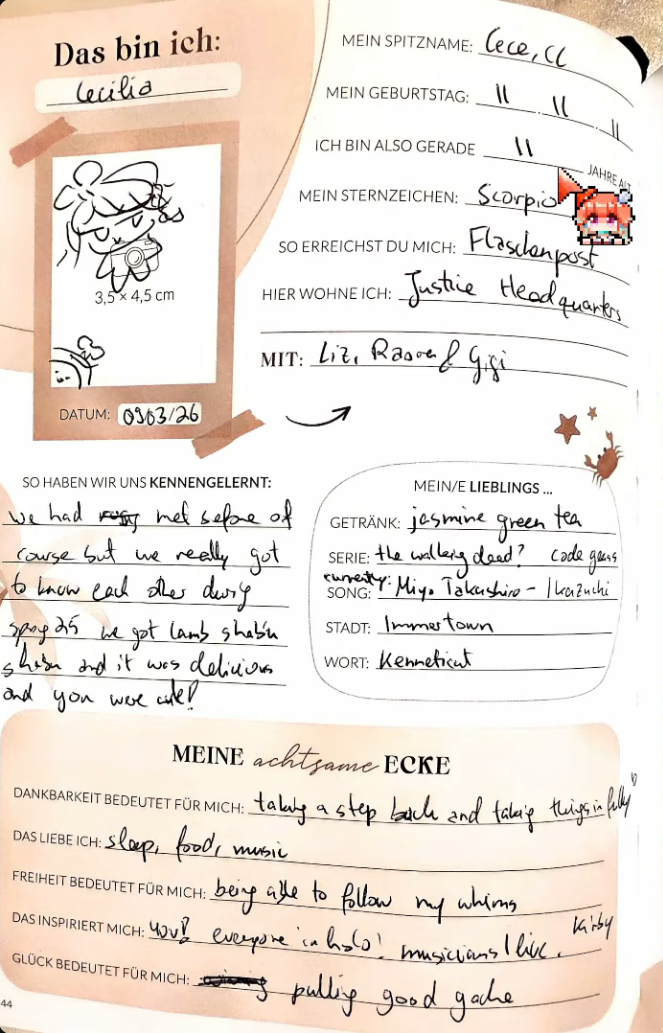 Das bin ich:
Cecilia
3,5 × 4,5 cm
DATUM: 0903/26
MEIN SPITZNAME: Cece, CC
MEIN GEBURTSTAG: 11 . 11 . 11
ICH BIN ALSO GERADE 11 JAHRE ALT
MEIN STERNZEICHEN: Scorpio
SO ERREICHST DU MICH: Flaschenpost
HIER WOHNE ICH: Justice Headquarters
MIT: Liz, Raora & Gigi
SO HABEN WIR UNS KENNENGELERNT:
we had met before of
course but we really got
to know each other during
spring 25 we got lamb shabu
shabu and it was delicious
and you were cute!
MEIN/E LIEBLINGS ...
GETRÄNK: jasmine green tea
SERIE: the walking dead? code geass
currently:
SONG: Miyo Takashiro - Ikazuchi
STADT: Immertown
WORT: Kenneticut
MEINE achtsame ECKE
DANKBARKEIT BEDEUTET FÜR MICH: taking a step back and taking things in fully
DAS LIEBE ICH: sleep, food, music
FREIHEIT BEDEUTET FÜR MICH: being able to follow my whims
DAS INSPIRIERT MICH: you! everyone in holo! musicians I live. Kirby
GLÜCK BEDEUTET FÜR MICH: pulling good gacha
44